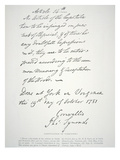 Article 14th
No Article of the Capitulation
to be infringed on pre-
tence of Reprisal, & if there be
any doubtful Expressions
in it, they are to be inter-
preted according to the com-
mon Meaning & Acceptation
of the Words.
Done at York in Virginia
the 19th day of October 1781
Cornwallis
Tho. Symonds